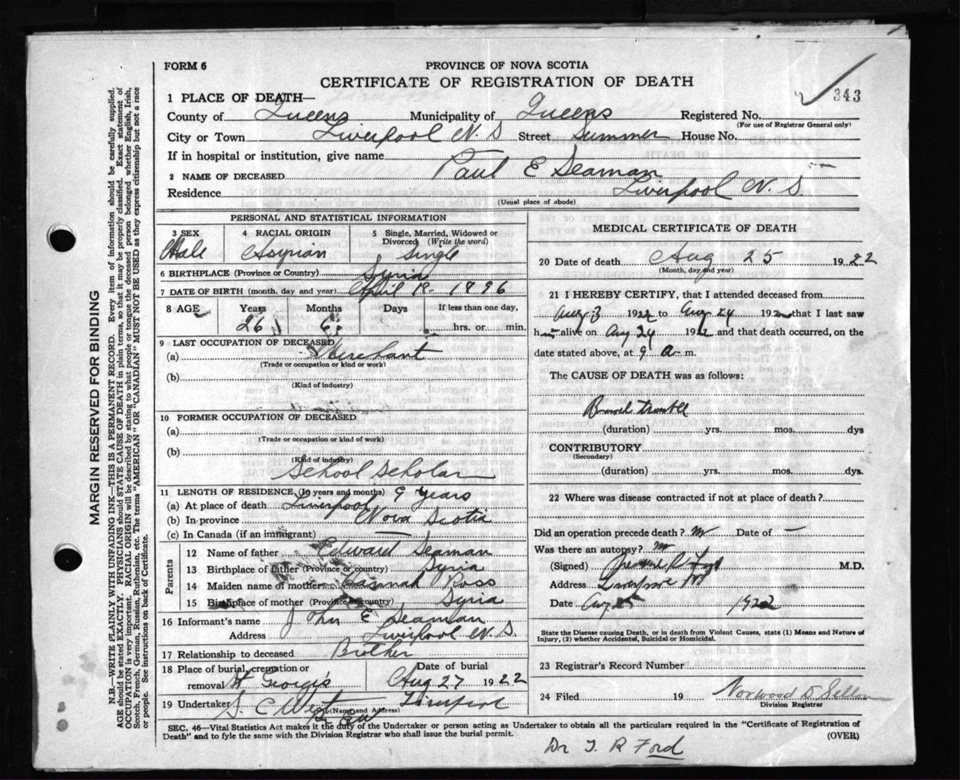 FORM 6
PROVINCE OF NOVA SCOTIA
CERTIFICATE OF REGISTRATION OF DEATH
343
1 PLACE OF DEATH—
County of Queens Municipality of Queens Registered No.
(For use of Registrar General only)
City or Town Liverpool N.S Street Summer House No.
If in hospital or institution, give name
2 NAME OF DECEASED Paul E Seaman
Residence Liverpool N.S
(Usual place of abode)
PERSONAL AND STATISTICAL INFORMATION
3 SEX 4 RACIAL ORIGIN 5 Single, Married, Widowed or Divorced (Write the word)
Male Assyrian Single
6 BIRTHPLACE (Province or Country) Syria
7 DATE OF BIRTH (month, day and year) April 1896
8 AGE Years Months Days If less than one day,
26 hrs. or min.
9 LAST OCCUPATION OF DECEASED
(a) Merchant
(Trade or occupation or kind or work)
(b)
(Kind of industry)
10 FORMER OCCUPATION OF DECEASED
(a)
(Trade or occupation or kind of work)
(b)
(Kind of industry)
School Scholar
11 LENGTH OF RESIDENCE (In years and months) 9 Years
(a) At place of death Liverpool
(b) In province Nova Scotia
(c) In Canada (if an immigrant)
Parents
12 Name of father Edward Seaman
13 Birthplace of father (Province or country) Syria
14 Maiden name of mother Ross
15 Birthplace of mother (Province or country) Syria
16 Informant's name John E Seaman
Address Liverpool N.S.
17 Relationship to deceased Brother
18 Place of burial, cremation or removal St Georges Date of burial Aug 27 1922
19 Undertaker S. C West Liverpool
(Name and Address)
MEDICAL CERTIFICATE OF DEATH
20 Date of death Aug 25 1922
(Month, day and year)
21 I HEREBY CERTIFY, that I attended deceased from
Aug 3 1922 to Aug 24 1922 that I last saw
h alive on Aug 24 1922 and that death occurred, on the
date stated above, at 9 a. m.
The CAUSE OF DEATH was as follows:
Bowel trouble
(duration) yrs. mos. dys
CONTRIBUTORY
(Secondary)
(duration) yrs. mos. dys
22 Where was disease contracted if not at place of death?
Did an operation precede death? no Date of —
Was there an autopsy? no
(Signed) M.D.
Address Liverpool
Date Aug 25 1922
State the Disease causing Death, or in death from Violent Causes, state (1) Means and Nature of
Injury, (2) whether Accidental, Suicidal or Homicidal.
23 Registrar's Record Number
24 Filed 19
Division Registrar
SEC. 46—Vital Statistics Act makes it the duty of the Undertaker or person acting as Undertaker to obtain all the particulars required in the "Certificate of Registration of
Death" and to fyle the same with the Division Registrar who shall issue the burial permit.
(OVER)
Dr T. R Ford
MARGIN RESERVED FOR BINDING
N.B.—WRITE PLAINLY WITH UNFADING INK—THIS IS A PERMANENT RECORD. Every item of information should be carefully supplied.
AGE should be stated EXACTLY. PHYSICIANS should STATE CAUSE OF DEATH in plain terms, so that it may be properly classified. Exact statement of
OCCUPATION is very important. RACIAL ORIGIN will be described by stating to what people or tongue the deceased person belonged whether English, Irish,
Scotch, French, German, Russian, Ruthenian, etc. The terms "AMERICAN" OR "CANADIAN" MUST NOT BE USED as they express citizenship but not a race
or people. See instructions on back of Certificate.